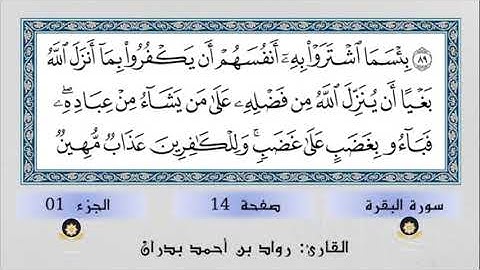 (٨٩) بِئْسَمَا اَشْتَرَوْا۟ بِهِۦٓ أَنفُسَهُمْ أَن يَكْفُرُوا۟ بِمَا أَنزَلَ اَللَّهُ
بَغْيًا أَن يُنَزِّلَ اَللَّهُ مِن فَضْلِهِۦ عَلَىٰ مَن يَشَآءُ مِنْ عِبَادِهِۦ
فَبَآءُو بِغَضَبٍ عَلَىٰ غَضَبٍ وَلِلْكَٰفِرِينَ عَذَابٌ مُّهِينٌ
سورة البقرة صفحة 14 الجزء 01
القارئ: رواد بن أحمد بدران